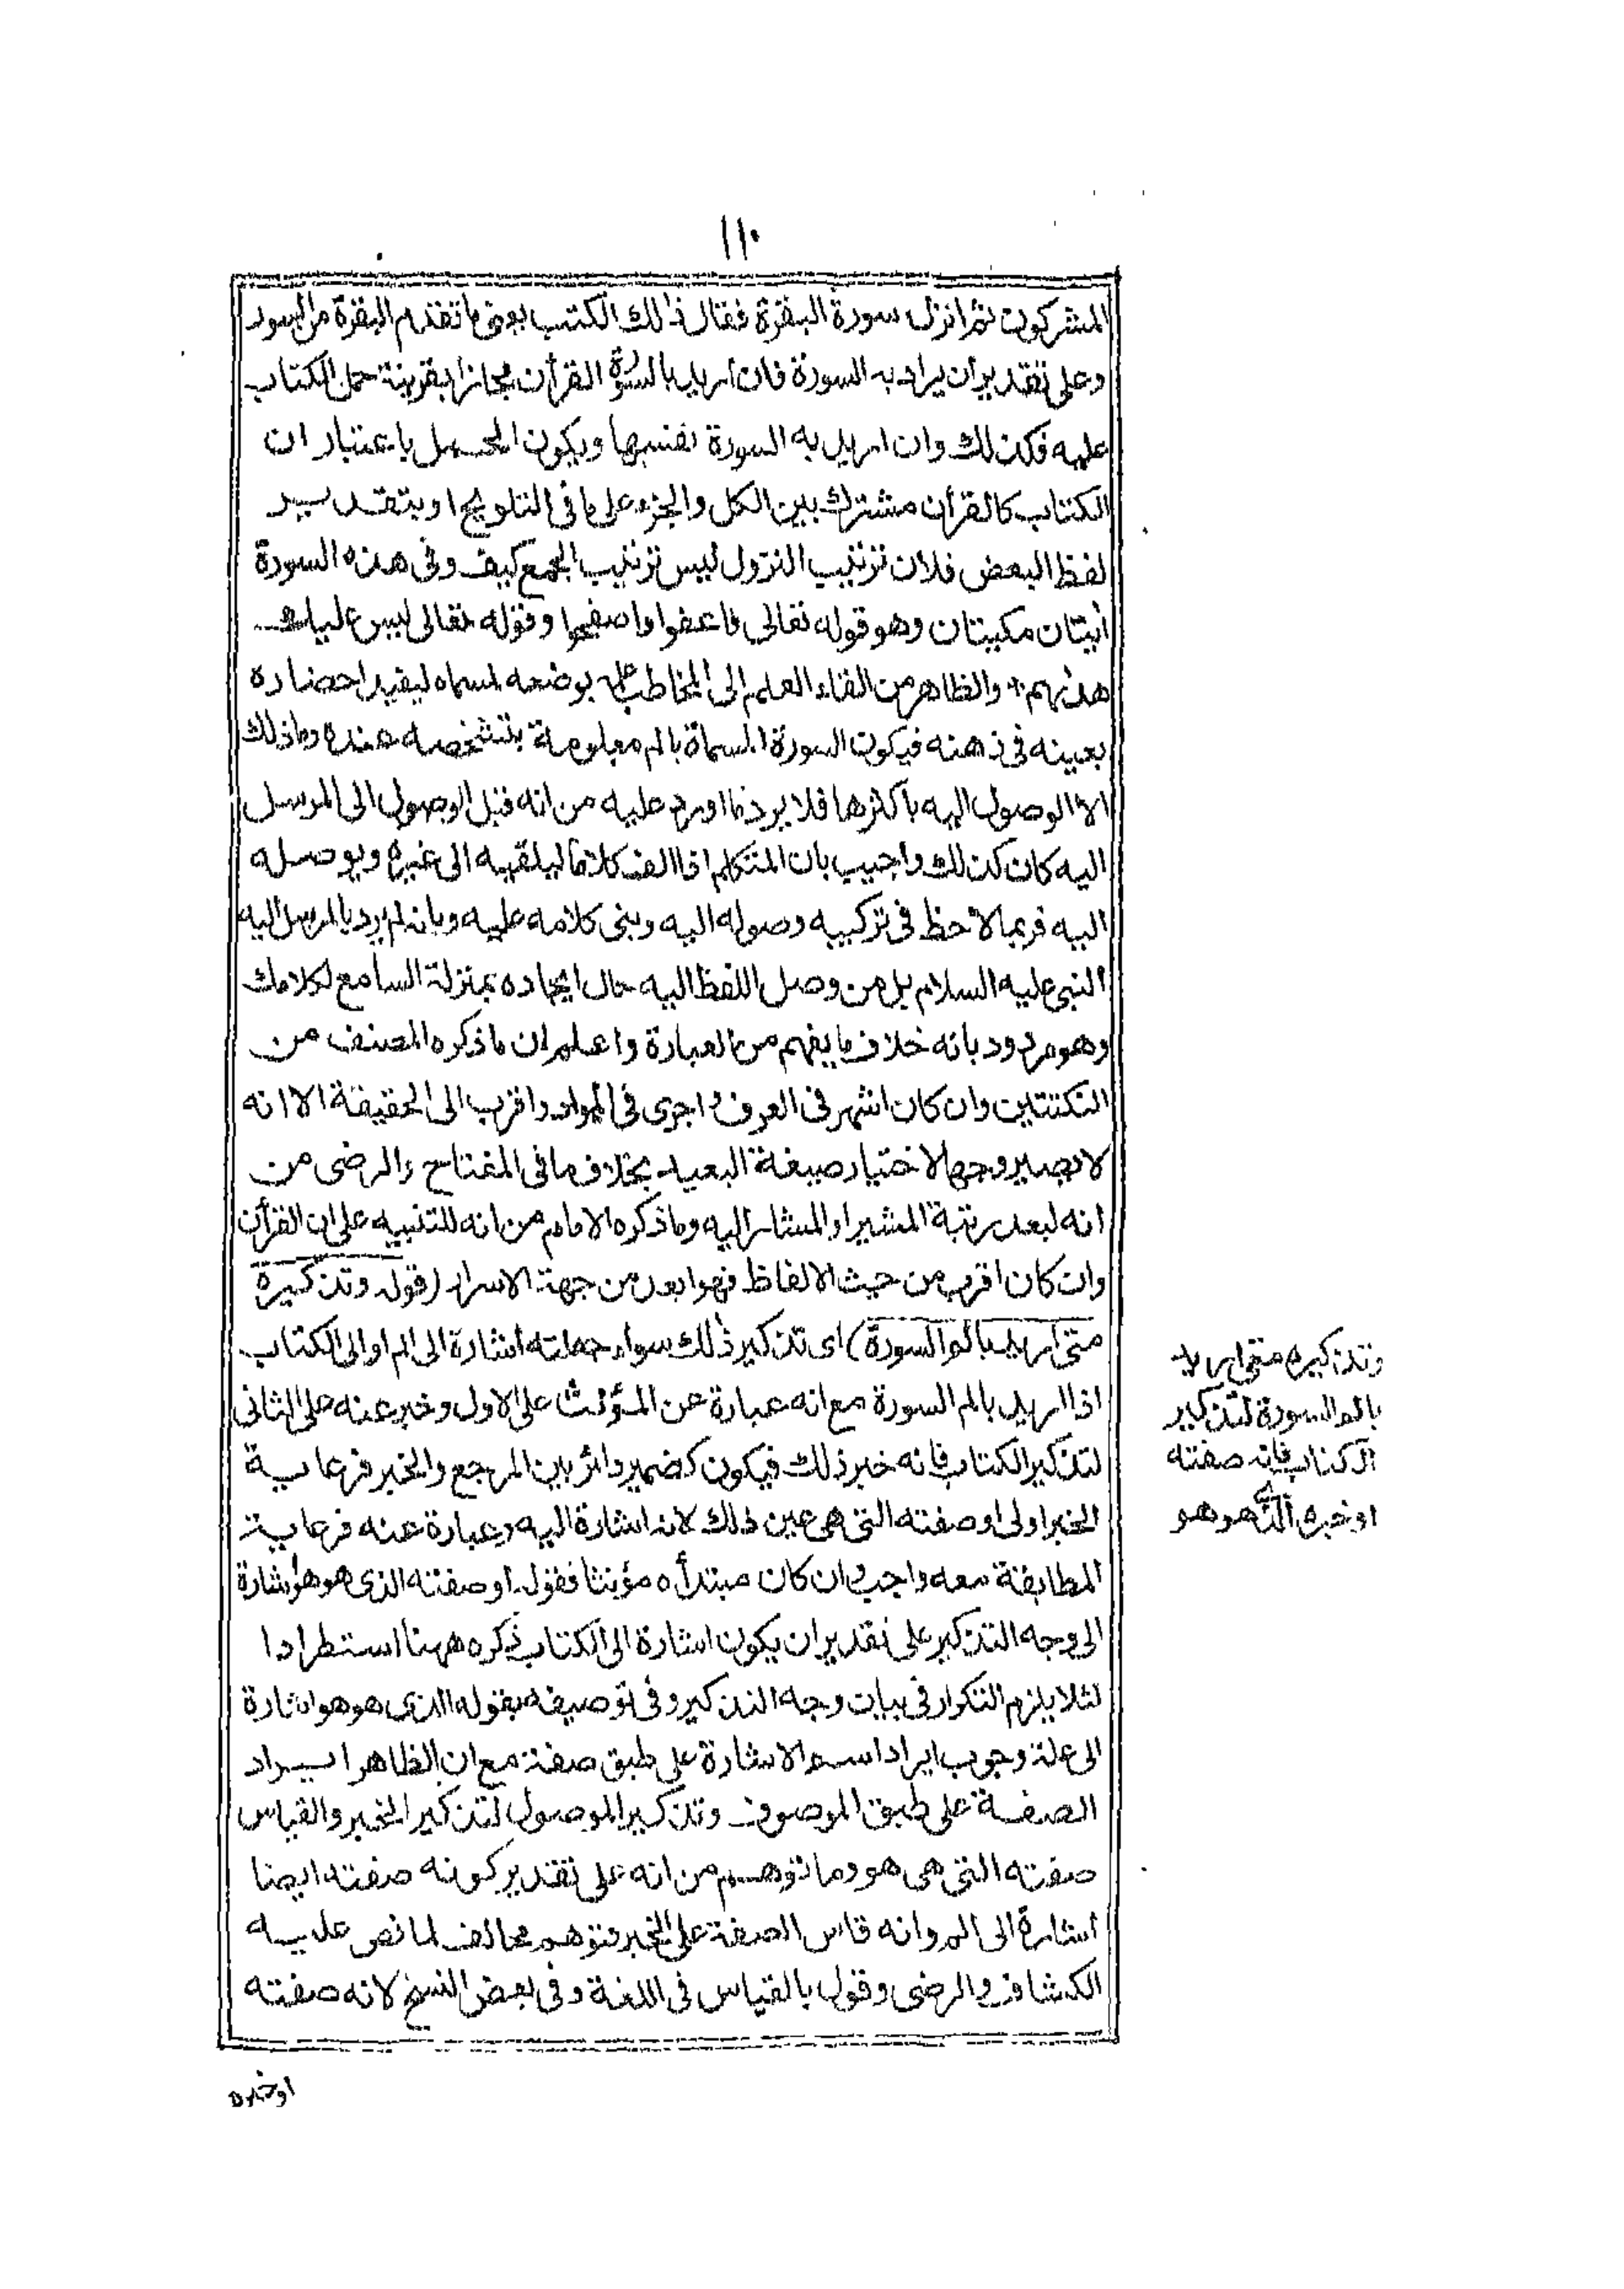 ١١٠
المشركون ثم انزل سورة البقرة فقال ذلك الكتب يعنى ما تقدم البقرة من السور
وعلى تقدير أن يراد به السورة فان اريد بالسورة القرأن مجازا بقرينة حمل الكتاب
عليه فكذلك وان اريد به السورة نفسها ويكون الحمل باعتبار ان
الكتاب كالقرأن مشترك بين الكل والجزء على ما فى التلويح او بتقدير
لفظ البعض فلان ترتيب النزول ليس ترتيب الجمع كيف وفى هذه السورة
أيتان مكيتان وهو قوله تعالى فاعفوا واصفحوا وقوله تعالى ليس عليك
هدىهم والظاهر من القاء العلم الى المخاطب علمه بوضعه لمسماه ليفيد احضاره
بعينه فى ذهنه فيكون السورة المسماة بالم معلومة بتشخصه عنده وما ذلك
الا الوصول اليه باكثرها فلا يرد ما اورد عليه من انه قبل الوصول الى المرسل
اليه كان كذلك واجيب بان المتكلم اذا الف كلاما ليلقيه الى غيره ويوصله
اليه فربما لاحظ فى تركيبه وصوله اليه وبنى كلامه عليه وبانه لم يرد بالمرسل اليه
النبى عليه السلام بل من وصل اللفظ اليه حال ايجاده بمنزلة السامع لكلامك
وهو مردود بانه خلاف ما يفهم من العبارة واعلم ان ما ذكره المصنف من
النكتتين وان كان اشهر فى العرف واجرى فى المواد واقرب الى الحقيقة الا انه
لا يصير وجها لاختيار صيغة البعيد بخلاف ما فى المفتاح والرضى من
انه لبعد رتبة المشير او المشار اليه وما ذكره الامام من انه للتنبيه على ان القرأن
وان كان اقرب من حيث الالفاظ فهو ابعد من جهة الاسرار (قوله وتذكيره
متى اريد بالم السورة) اى تذكير ذلك سواء جعلته اشارة الى الم او الى الكتاب
اذا اريد بالم السورة مع انه عبارة عن المؤنث على الاول وخبر عنه على الثانى
لتذكير الكتاب فانه خبر ذلك فيكون كضمير دائر بين المرجع والخبر فرعاية
الخبر اولى او صفته التى هى عين ذلك لانه اشارة اليه وعبارة عنه فرعاية
المطابقة معه واجب وان كان مبتدأه مؤنثا فقوله او صفته الذى هو هو اشارة
الى وجه التذكير على تقدير ان يكون اشارة الى الكتاب ذكره ههنا استطرادا
لئلا يلزم التكرار فى بيان وجه التذكير وفى توصيفه بقوله الذى هو هو اشارة
الى علة وجوب ايراد اسم الاشارة على طبق صفته مع ان الظاهر ايراد
الصفة على طبق الموصوف وتذكير الموصول لتذكير الخبر والقياس
صفته التى هى هو وما توهم من انه على تقدير كونه صفته ايضا
اشارة الى الم وانه قاس الصفة على الخبر فتوهم مخالف لما نص عليه
الكشاف والرضى وقول بالقياس فى اللغة وفى بعض النسخ لانه صفته
اوخبره
وتذكيره متى اريد
بالم السورة لتذكير
الكتاب فانه صفته
او خبره الذى هو هو